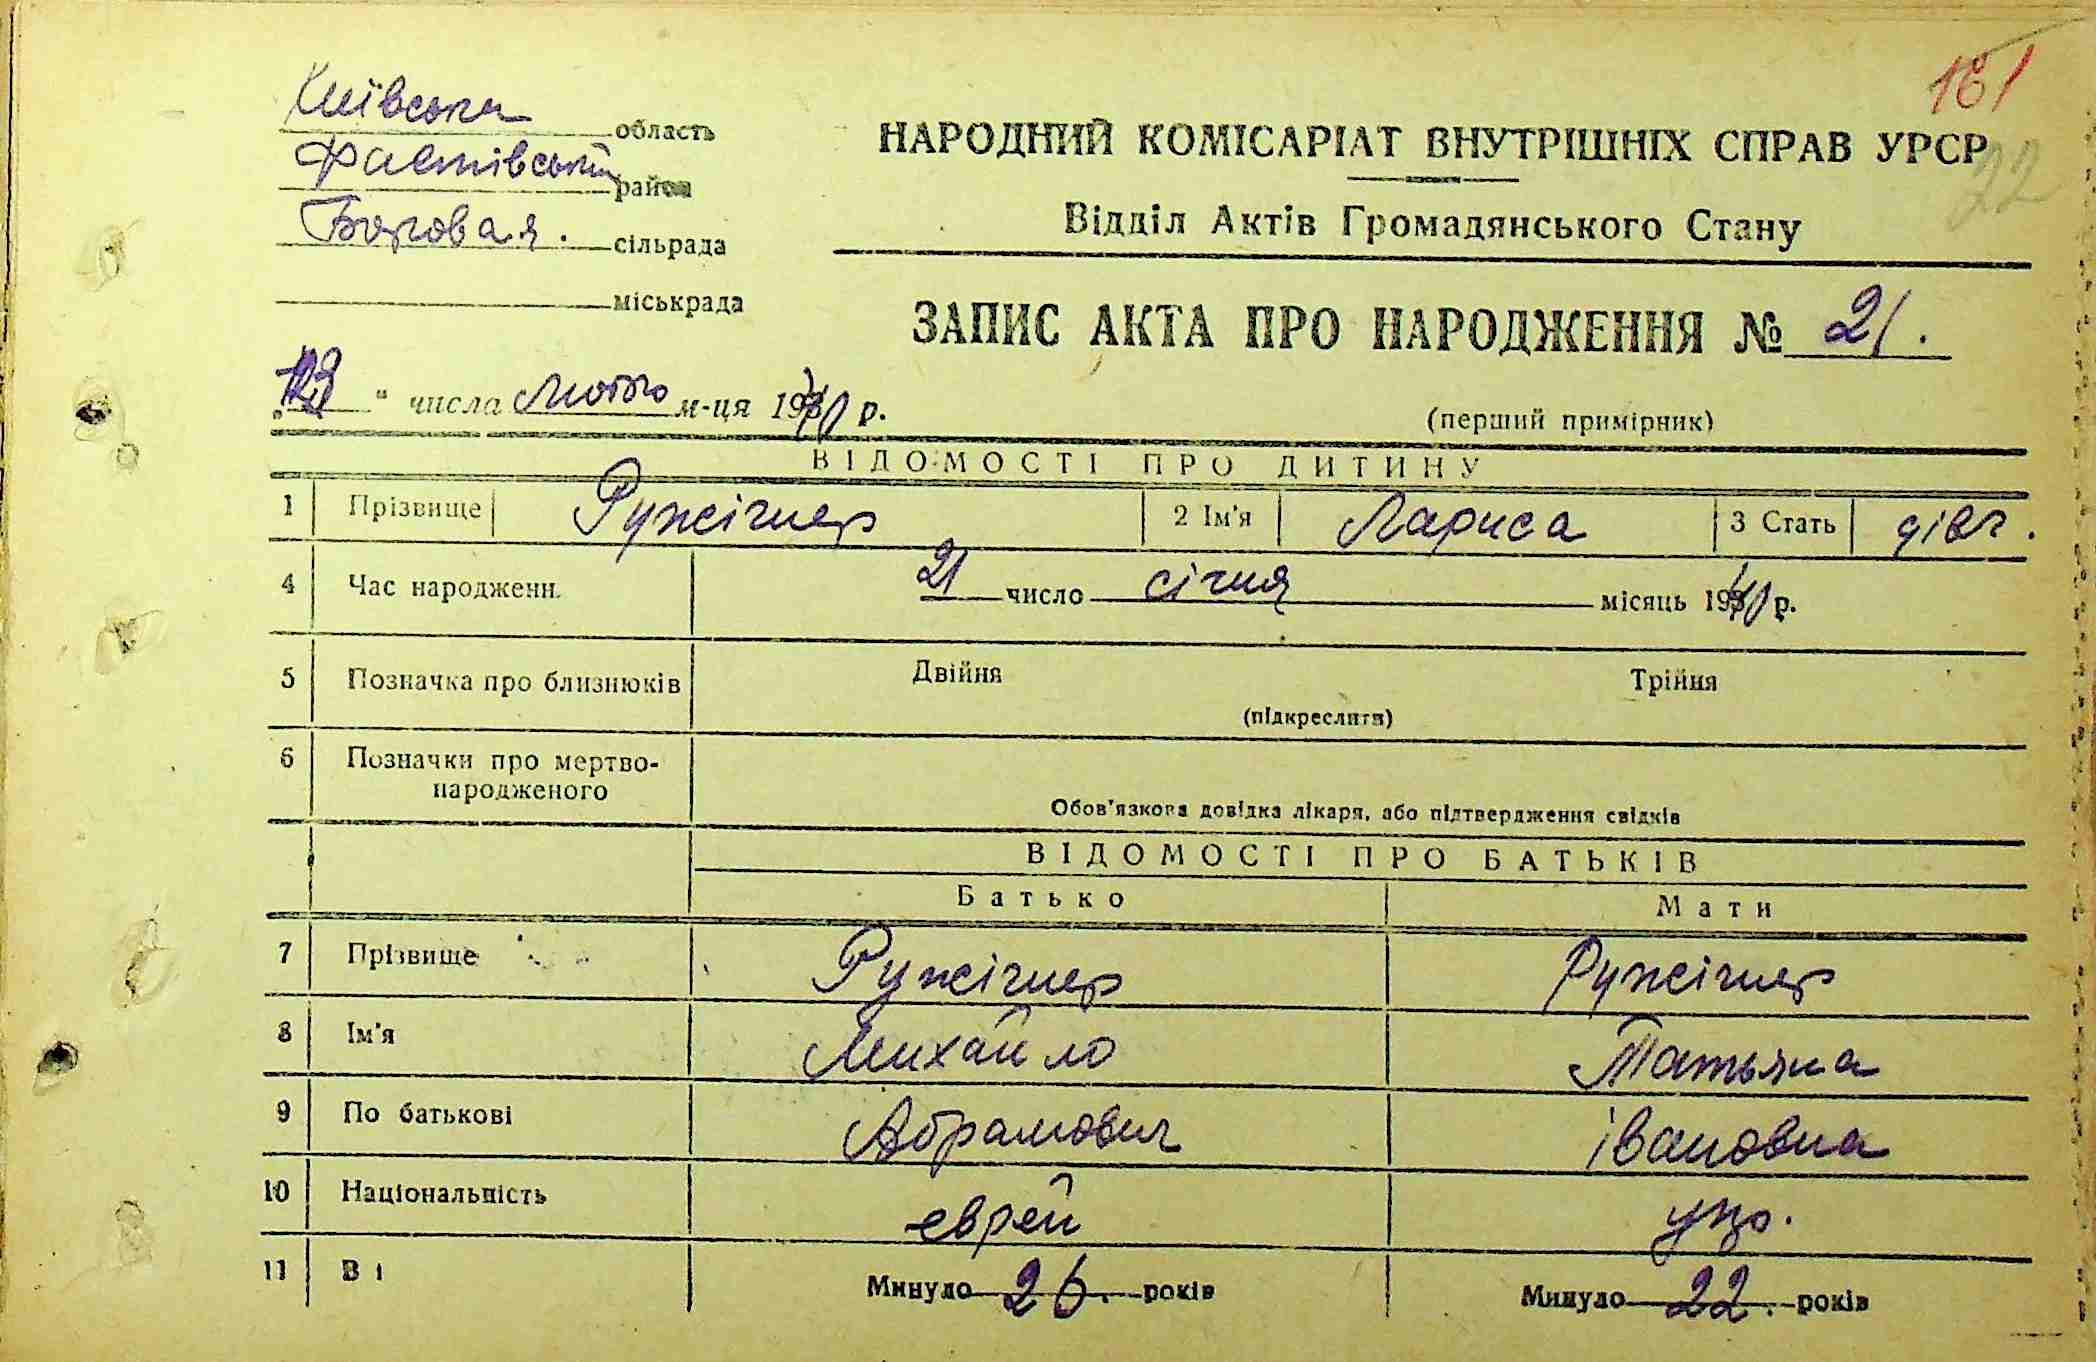 Київська область
Фастівський район
Боровая. сільрада
міськрада
181
22
НАРОДНИЙ КОМІСАРІАТ ВНУТРІШНІХ СПРАВ УРСР
Відділ Актів Громадянського Стану
ЗАПИС АКТА ПРО НАРОДЖЕННЯ № 21.
" числа Лютого м-ця 1940 р.
(перший примірник)
ВІДОМОСТІ ПРО ДИТИНУ
1 Прізвище Ружічнер 2 Ім'я Лариса 3 Стать дівч.
4 Час народженн. 21 число січня місяць 1940 р.
5 Позначка про близнюків Двійня Трійня
(підкреслити)
6 Позначки про мертво-
народженого
Обов'язкова довідка лікаря, або підтвердження свідків
ВІДОМОСТІ ПРО БАТЬКІВ
Батько Мати
7 Прізвище Ружічнер Ружічнер
8 Ім'я Михайло Татьяна
9 По батькові Абрамович Івановна
10 Національність еврей укр.
11 Ві Минуло 26. років Минуло 22. років